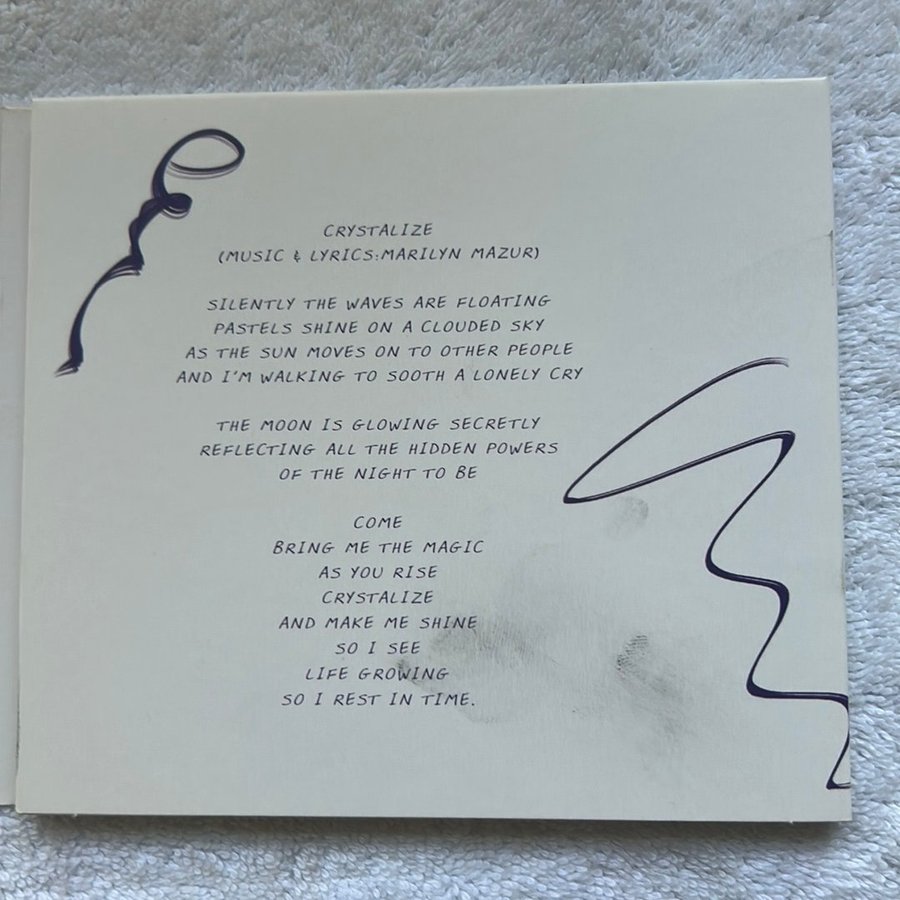 CRYSTALIZE
(MUSIC & LYRICS:MARILYN MAZUR)
SILENTLY THE WAVES ARE FLOATING
PASTELS SHINE ON A CLOUDED SKY
AS THE SUN MOVES ON TO OTHER PEOPLE
AND I'M WALKING TO SOOTH A LONELY CRY
THE MOON IS GLOWING SECRETLY
REFLECTING ALL THE HIDDEN POWERS
OF THE NIGHT TO BE
COME
BRING ME THE MAGIC
AS YOU RISE
CRYSTALIZE
AND MAKE ME SHINE
SO I SEE
LIFE GROWING
SO I REST IN TIME.